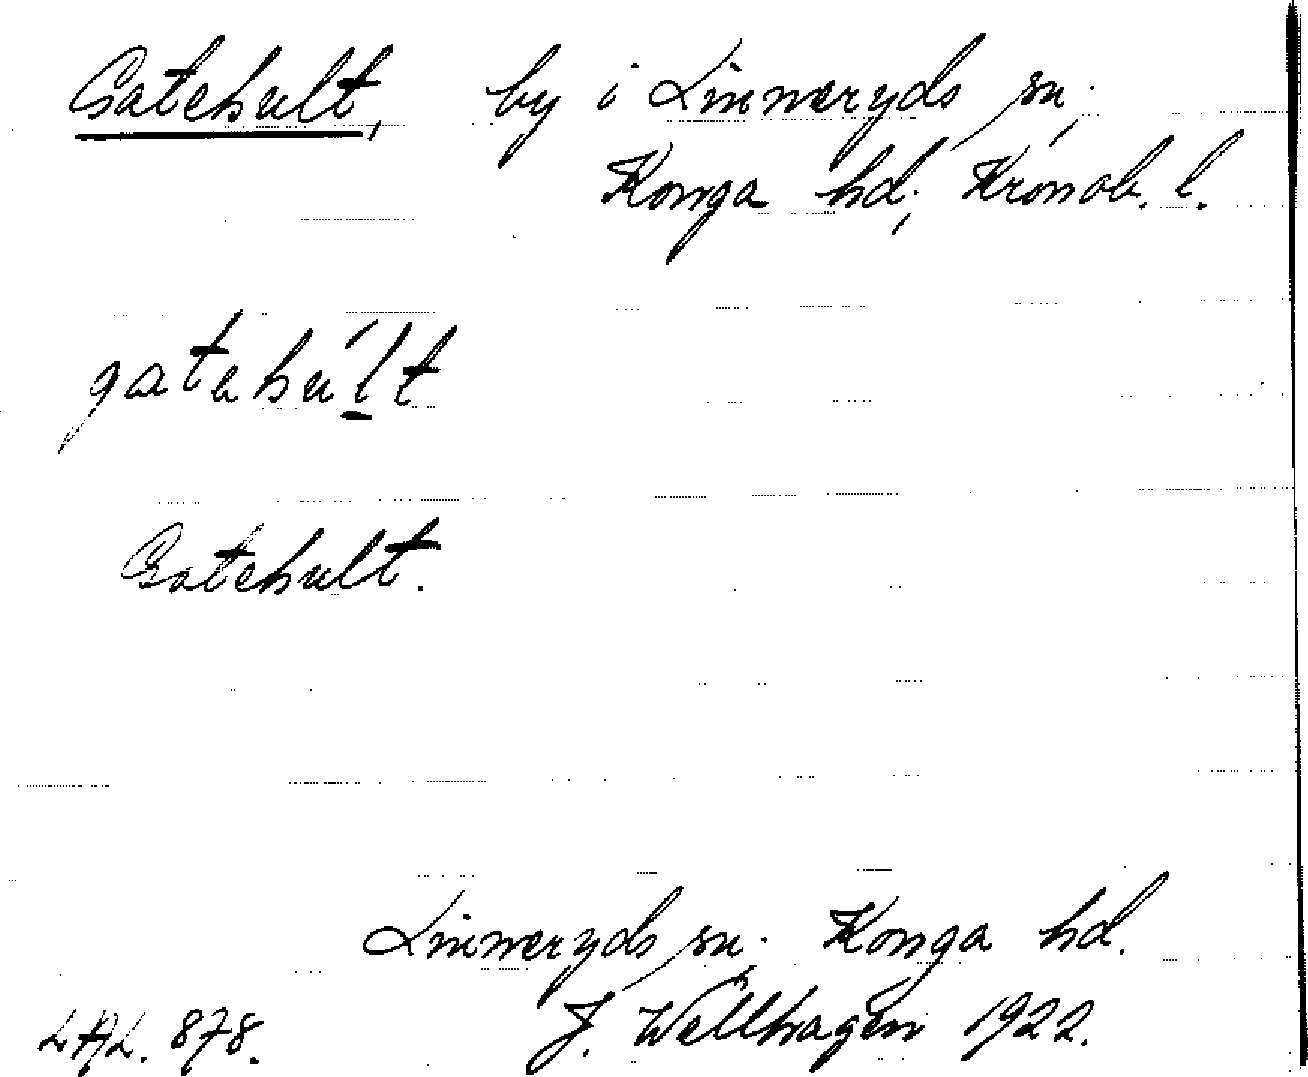 Gatehult, by i Linneryds sn,
Konga hd, Kronob. l.
gatehúl̠t
Gatehult.
Linneryds sn. Konga hd.
J. Wellhagen 1922.
LAL. 878.